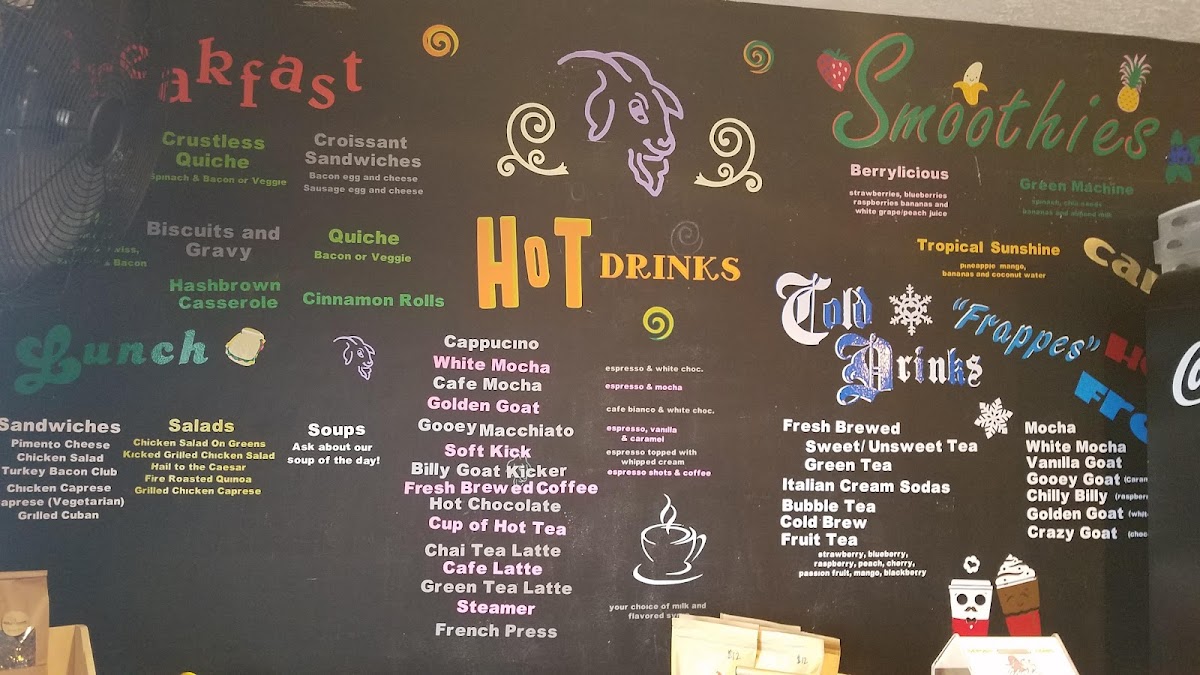 Breakfast
Crustless
Quiche
Spinach & Bacon or Veggie
Croissant
Sandwiches
Bacon egg and cheese
Sausage egg and cheese
Biscuits and
Gravy
& Bacon
Quiche
Bacon or Veggie
Hashbrown
Casserole
Cinnamon Rolls
Lunch
Sandwiches
Pimento Cheese
Chicken Salad
Turkey Bacon Club
Chicken Caprese
aprese (Vegetarian)
Grilled Cuban
Salads
Chicken Salad On Greens
Kicked Grilled Chicken Salad
Hail to the Caesar
Fire Roasted Quinoa
Grilled Chicken Caprese
Soups
Ask about our
soup of the day!
HOT DRINKS
Cappucino
White Mocha
Cafe Mocha
Golden Goat
Gooey Macchiato
Soft Kick
Billy Goat Kicker
Fresh Brewed Coffee
Hot Chocolate
Cup of Hot Tea
Chai Tea Latte
Cafe Latte
Green Tea Latte
Steamer
French Press
espresso & white choc.
espresso & mocha
cafe bianco & white choc.
espresso, vanilla
& caramel
espresso topped with
whipped cream
espresso shots & coffee
your choice of milk and
flavored
Smoothies
Berrylicious
strawberries, blueberries
raspberries bananas and
white grape/peach juice
Green Machine
spinach, chia seeds
bananas and almond milk
Tropical Sunshine
pineapple mango,
bananas and coconut water
Car
Cold
Drinks
Fresh Brewed
Sweet/Unsweet Tea
Green Tea
Italian Cream Sodas
Bubble Tea
Cold Brew
Fruit Tea
strawberry, blueberry,
raspberry, peach, cherry,
passion fruit, mango, blackberry
"Frappes"
Ho
Fro
Mocha
White Mocha
Vanilla Goat
Gooey Goat (Caram
Chilly Billy (raspberr
Golden Goat (whit
Crazy Goat (choc
$12
$12